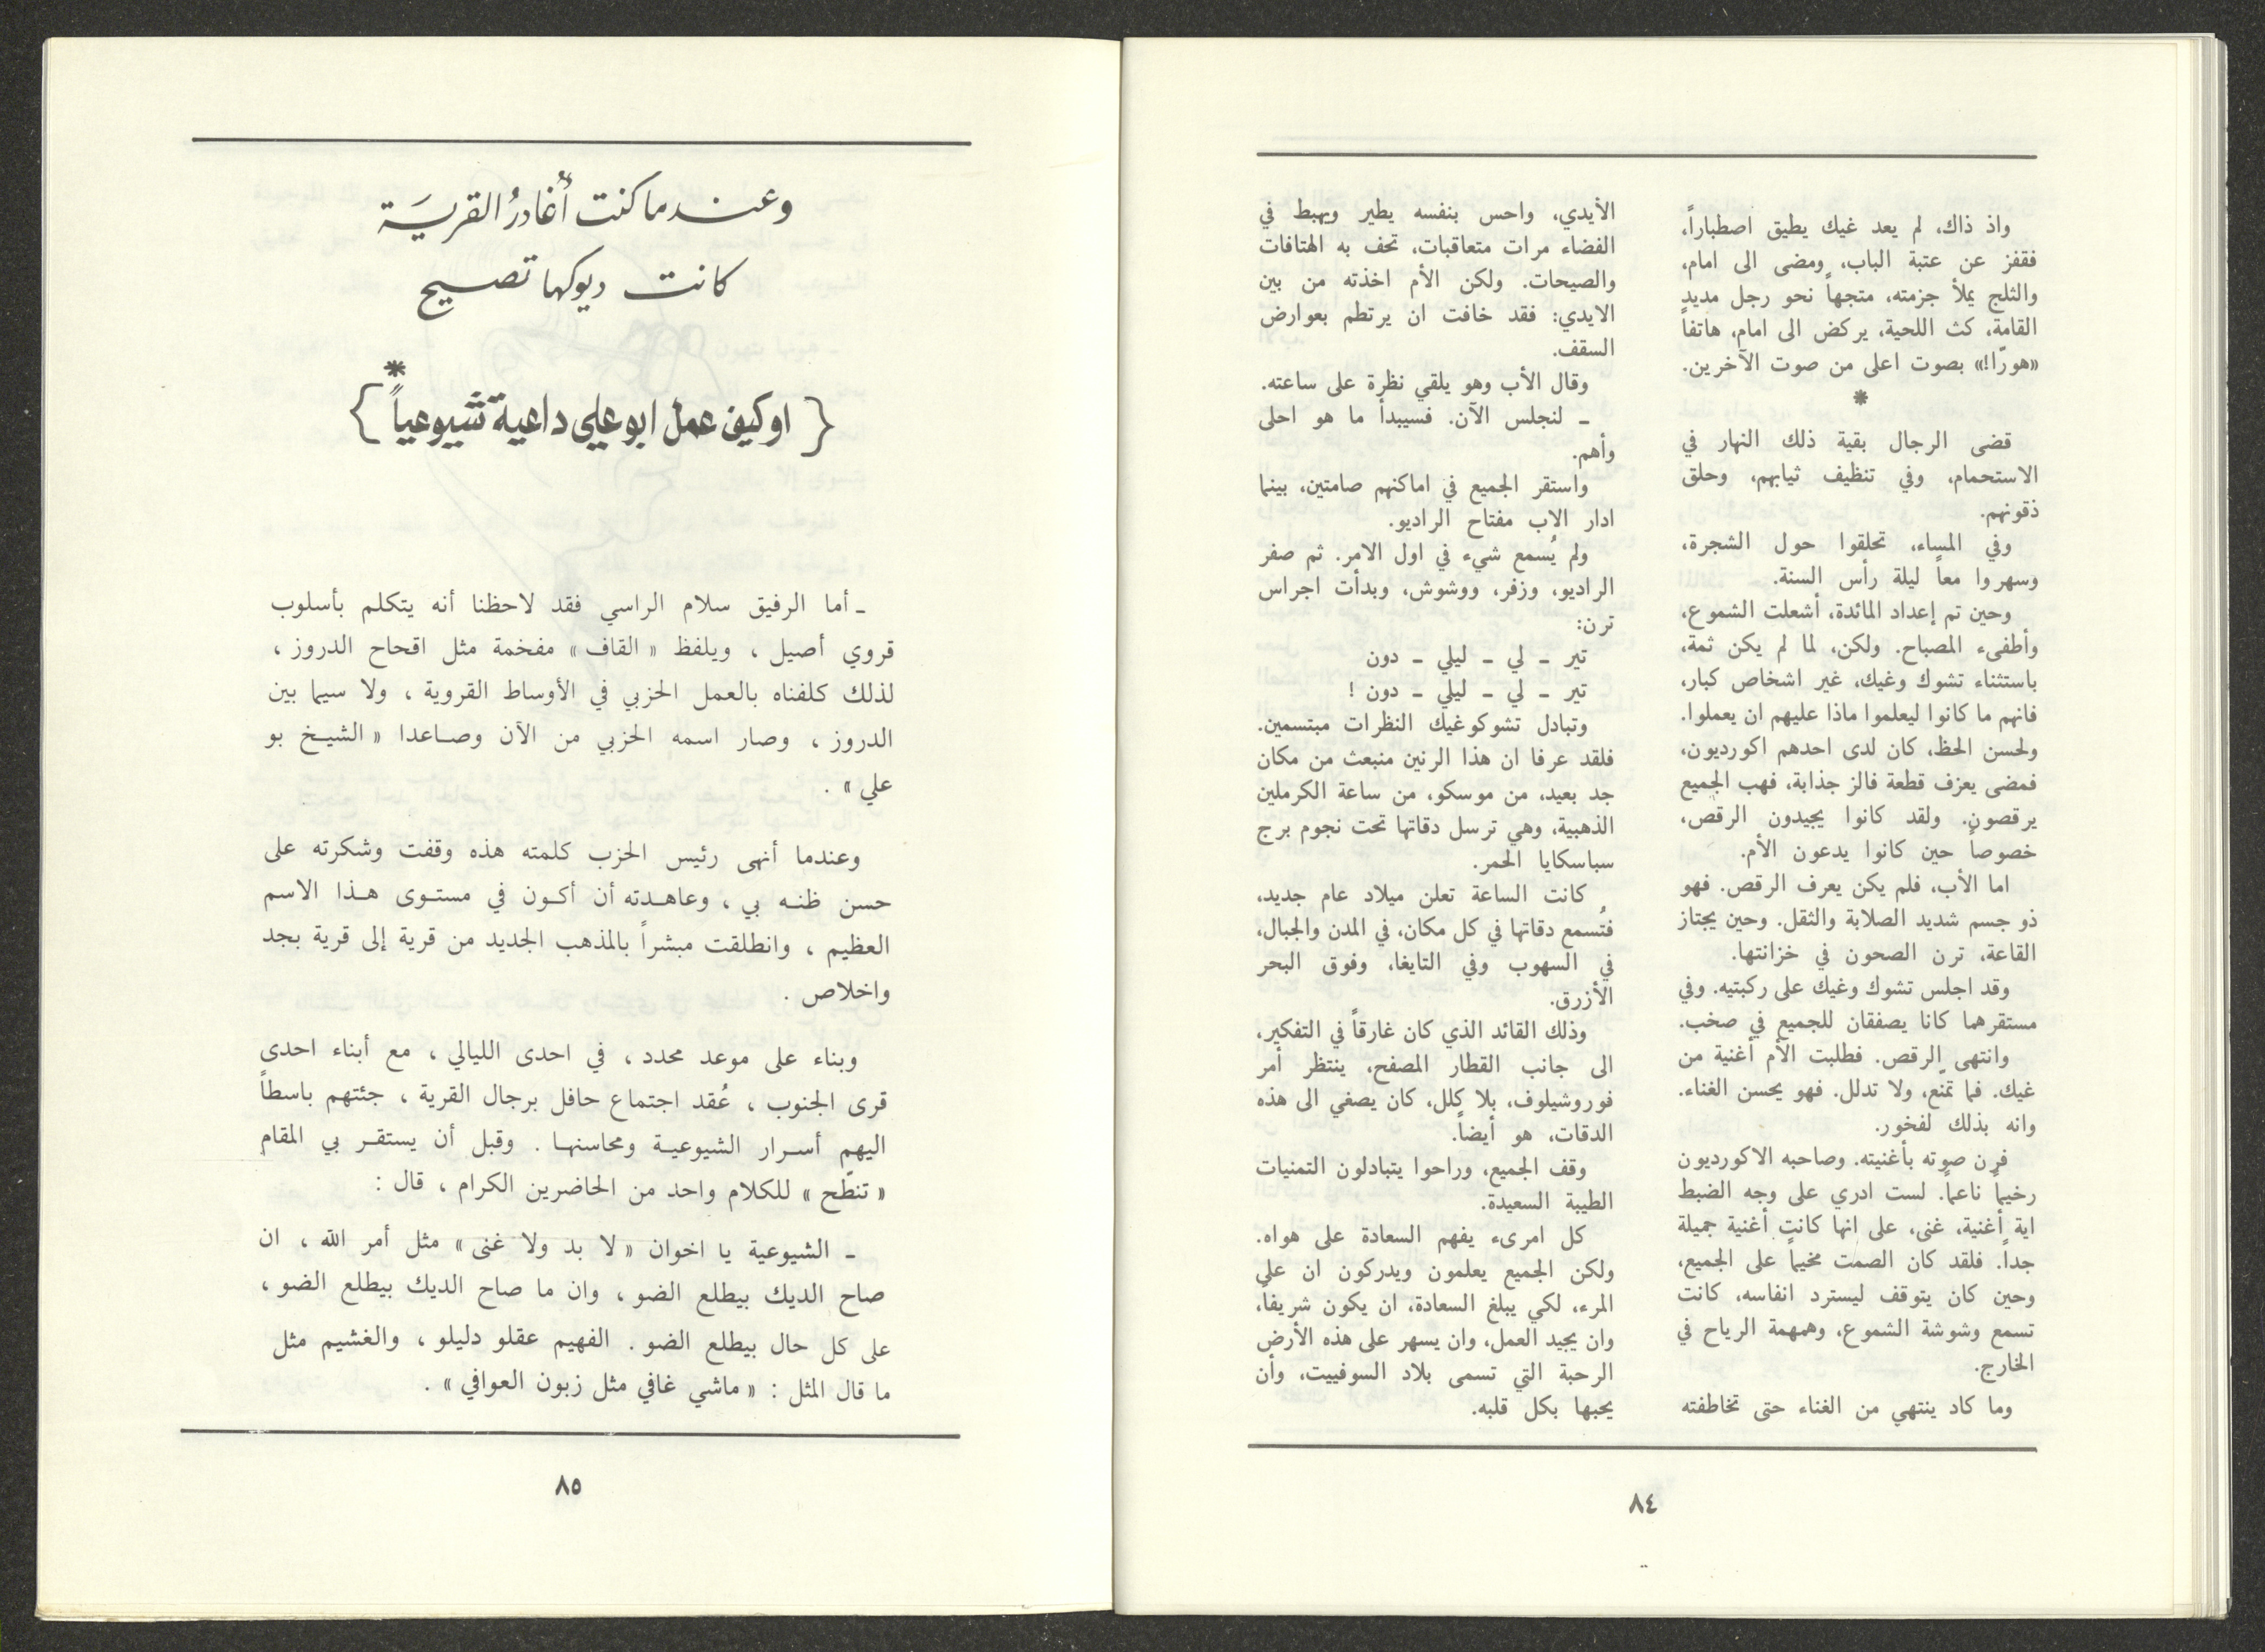 واذ ذاك، لم يعد غيك يطيق اصطباراً،
فقفز عن عتبة الباب، ومضى الى امام،
والثلج يملأ جزمته، متجهاً نحو رجل مديد
القامة، كث اللحية، يركض الى امام، هاتفاً
«هورّا!» بصوت اعلى من صوت الآخرين.
*
قضى الرجال بقية ذلك النهار في
الاستحمام، وفي تنظيف ثيابهم، وحلق
ذقونهم.
وفي المساء، تحلقوا حول الشجرة،
وسهروا معاً ليلة رأس السنة.
وحين تم إعداد المائدة، أشعلت الشموع،
وأطفىء المصباح. ولكن، لما لم يكن ثمة،
باستثناء تشوك وغيك، غير اشخاص كبار،
فانهم ما كانوا ليعلموا ماذا عليهم ان يعملوا.
ولحسن الحظ، كان لدى احدهم اكورديون،
فمضى يعزف قطعة فالز جذابة، فهب الجميع
يرقصون. ولقد كانوا يجيدون الرقص،
خصوصاً حين كانوا يدعون الأم.
اما الأب، فلم يكن يعرف الرقص. فهو
ذو جسم شديد الصلابة والثقل. وحين يجتاز
القاعة، ترن الصحون في خزانتها.
وقد اجلس تشوك وغيك على ركبتيه. وفي
مستقرهما كانا يصفقان للجميع في صخب.
وانتهى الرقص. فطلبت الأم أغنية من
غيك. فما تمنّع، ولا تدلل. فهو يحسن الغناء.
وانه بذلك لفخور.
فرن صوته بأغنيته. وصاحبه الاكورديون
رخيماً ناعماً. لست ادري على وجه الضبط
اية أغنية، غنى، على انها كانت أغنية جميلة
جداً. فلقد كان الصمت مخيماً على الجميع،
وحين كان يتوقف ليسترد انفاسه، كانت
تسمع وشوشة الشموع، وهمهمة الرياح في
الخارج.
وما كاد ينتهي من الغناء حتى تخاطفته
الأيدي، واحس بنفسه يطير ويهبط في
الفضاء مرات متعاقبات، تحف به الهتافات
والصيحات. ولكن الأم اخذته من بين
الايدي: فقد خافت ان يرتطم بعوارض
السقف.
وقال الأب وهو يلقي نظرة على ساعته.
ـ لنجلس الآن. فسيبدأ ما هو احلى
وأهم.
واستقر الجميع في اماكنهم صامتين، بينما
ادار الاب مفتاح الراديو.
ولم يُسمع شيء في اول الامر. ثم صفر
الراديو، وزفر، ووشوش، وبدأت اجراس
ترن:
تير ـ لي ـ ليلي ـ دون
تير ـ لي ـ ليلي ـ دون !
وتبادل تشوكوغيك النظرات مبتسمين.
فلقد عرفا ان هذا الرنين منبعث من مكان
جد بعيد، من موسكو، من ساعة الكرملين
الذهبية، وهي ترسل دقاتها تحت نجوم برج
سباسكايا الحمر.
كانت الساعة تعلن ميلاد عام جديد،
فتُسمع دقاتها في كل مكان، في المدن والجبال،
في السهوب وفي التايغا، وفوق البحر
الأزرق.
وذلك القائد الذي كان غارقاً في التفكير،
الى جانب القطار المصفح، ينتظر أمر
فوروشيلوف، بلا كلل، كان يصغي الى هذه
الدقات، هو أيضاً.
وقف الجميع، وراحوا يتبادلون التمنيات
الطيبة السعيدة.
كل امرىء يفهم السعادة على هواه.
ولكن الجميع يعلمون ويدركون ان على
المرء، لكي يبلغ السعادة، ان يكون شريفا،
وان يجيد العمل، وان يسهر على هذه الأرض
الرحبة التي تسمى بلاد السوفييت، وأن
يحبها بكل قلبه.
٨٤
وعندما كنت أُغادرُ القريَة
كانت ديوكها تصيح
*
{ او كيف عمل ابو علي داعية شيوعياً }
ـ أما الرفيق سلام الراسي فقد لاحظنا أنه يتكلم بأسلوب
قروي أصيل ، ويلفظ « القاف » مفخمة مثل اقحاح الدروز ،
لذلك كلفناه بالعمل الحزبي في الأوساط القروية ، ولا سيما بين
الدروز ، وصار اسمه الحزبي من الآن وصـاعدا « الشيـخ بو
علي » .
وعندما أنهى رئيس الحزب كلمته هذه وقفت وشكرته على
حسن ظنـه بي ، وعاهـدته أن أكـون في مستـوى هـذا الاسم
العظيم ، وانطلقت مبشراً بالمذهب الجديد من قرية إلى قرية بجد
واخلاص .
وبناء على موعد محدد ، في احدى الليالي ، مع أبناء احدى
قرى الجنوب ، عُقد اجتماع حافل برجال القرية ، جئتهم باسطاً
اليهم أسـرار الشيوعيـة ومحاسنهـا . وقبل أن يستقـر بي المقام
« تنطّح » للكلام واحد من الحاضرين الكرام ، قال :
ـ الشيوعية يا اخوان « لا بد ولا غنى » مثل أمر الله ، ان
صاح الديك بيطلع الضو ، وان ما صاح الديك بيطلع الضو ،
على كل حال بيطلع الضو . الفهيم عقلو دليلو ، والغشيم مثل
ما قال المثل : « ماشي غافي مثل زبون العوافي » .
٨٥